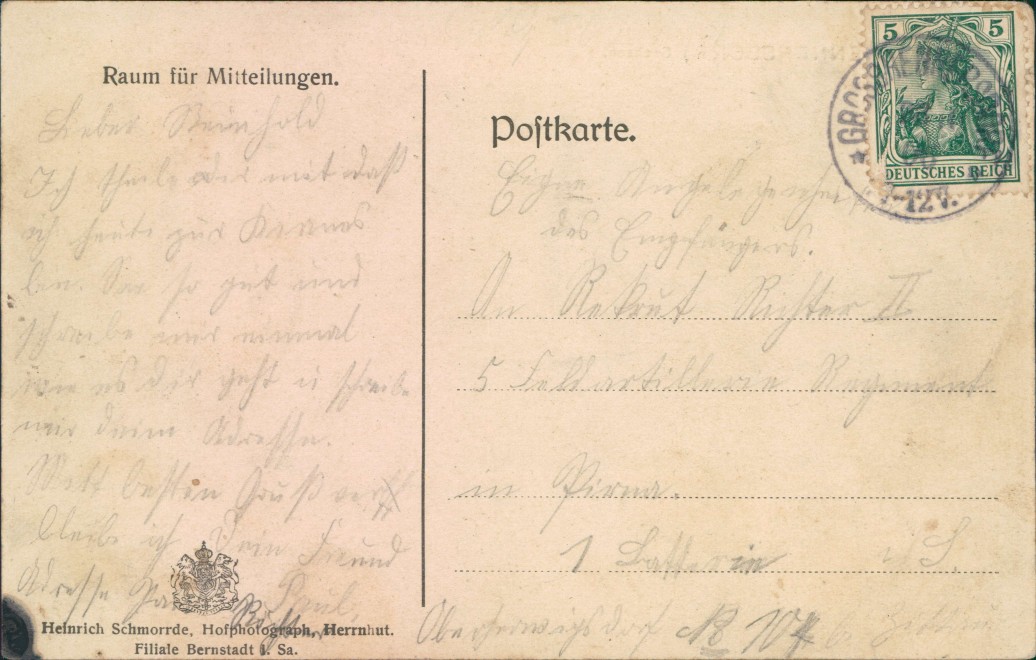 Raum für Mitteilungen.
Lieber Reinhold
Ich theile dir mit daß
ich heute zur
bin. Sei so gut und
schreibe mir einmal
wie es dir geht u schreibe
mir deine Adresse.
Mit besten Gruß
bleibe ich Dein Freund
Adresse Paul
Richter
Heinrich Schmorrde, Hofphotograph, Herrnhut.
Filiale Bernstadt i. Sa.
Postkarte.
5 5
DEUTSCHES REICH
-12V.
Eigne Angelegenheit
des Empfängers.
An Rekrut Richter II
5 Feldartillerie Regiment
in Pirna.
1 Batterie i. S.
Oberherwigsdorf